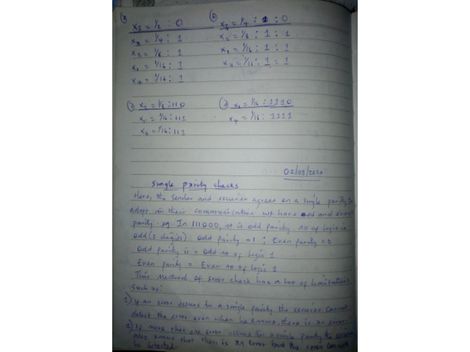 x₂ = 1/2 : 0
x₃ = 1/4 : 1
x₂ = 1/8 : 1
x₁ = 1/16 : 1
x₄ = 1/16 : 1
x₃ = 1/4 : 1 : 0
x₂ = 1/8 : 1 : 1
x₁ = 1/16 : 1 : 1
x₄ = 1/16 : 1 : 1
x₂ = 1/8 : 110
x₁ = 1/16 : 111
x₄ = 1/16 : 111
x₁ = 1/16 : 1110
x₄ = 1/16 : 1111
02/03/2020
Single parity checks
Here, the sender and receiver agrees on a single parity to
adopt in their communication we have odd and even
parity eg. In 111000, it is odd parity no of logic is
odd (3 digits) odd parity = 1 ; Even parity = 0
Odd parity is = odd no of logic 1
Even parity = Even no of logic 1
This method of error check has a lot of limitations
such as:
1) If an error occurs for a single parity the receiver cannot
detect the error even when he knows there is an error
2) If more than one error occurs for a single parity the
also knows that there is an error but the error cannot
be detected